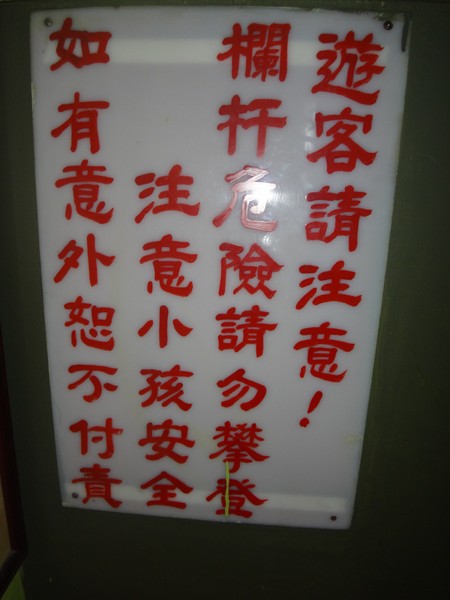 遊客請注意！
欄杆危險請勿攀登
注意小孩安全
如有意外恕不付責